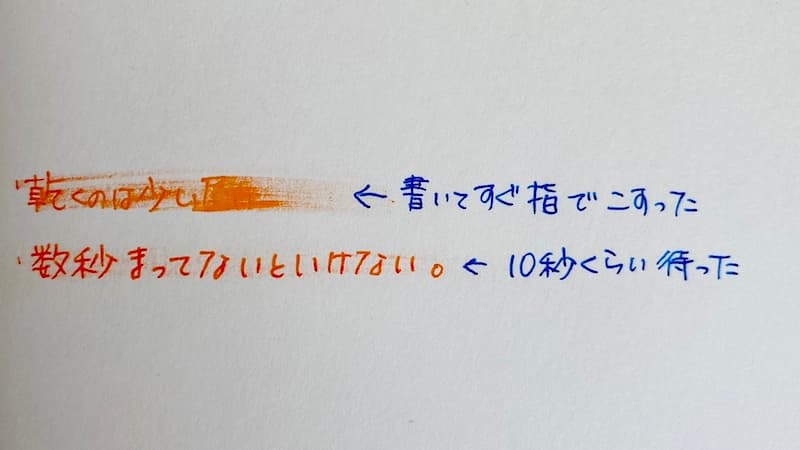 ・乾くのは少し ← 書いてすぐ指でこすった
・数秒まってないといけない。 ← 10秒くらい待った